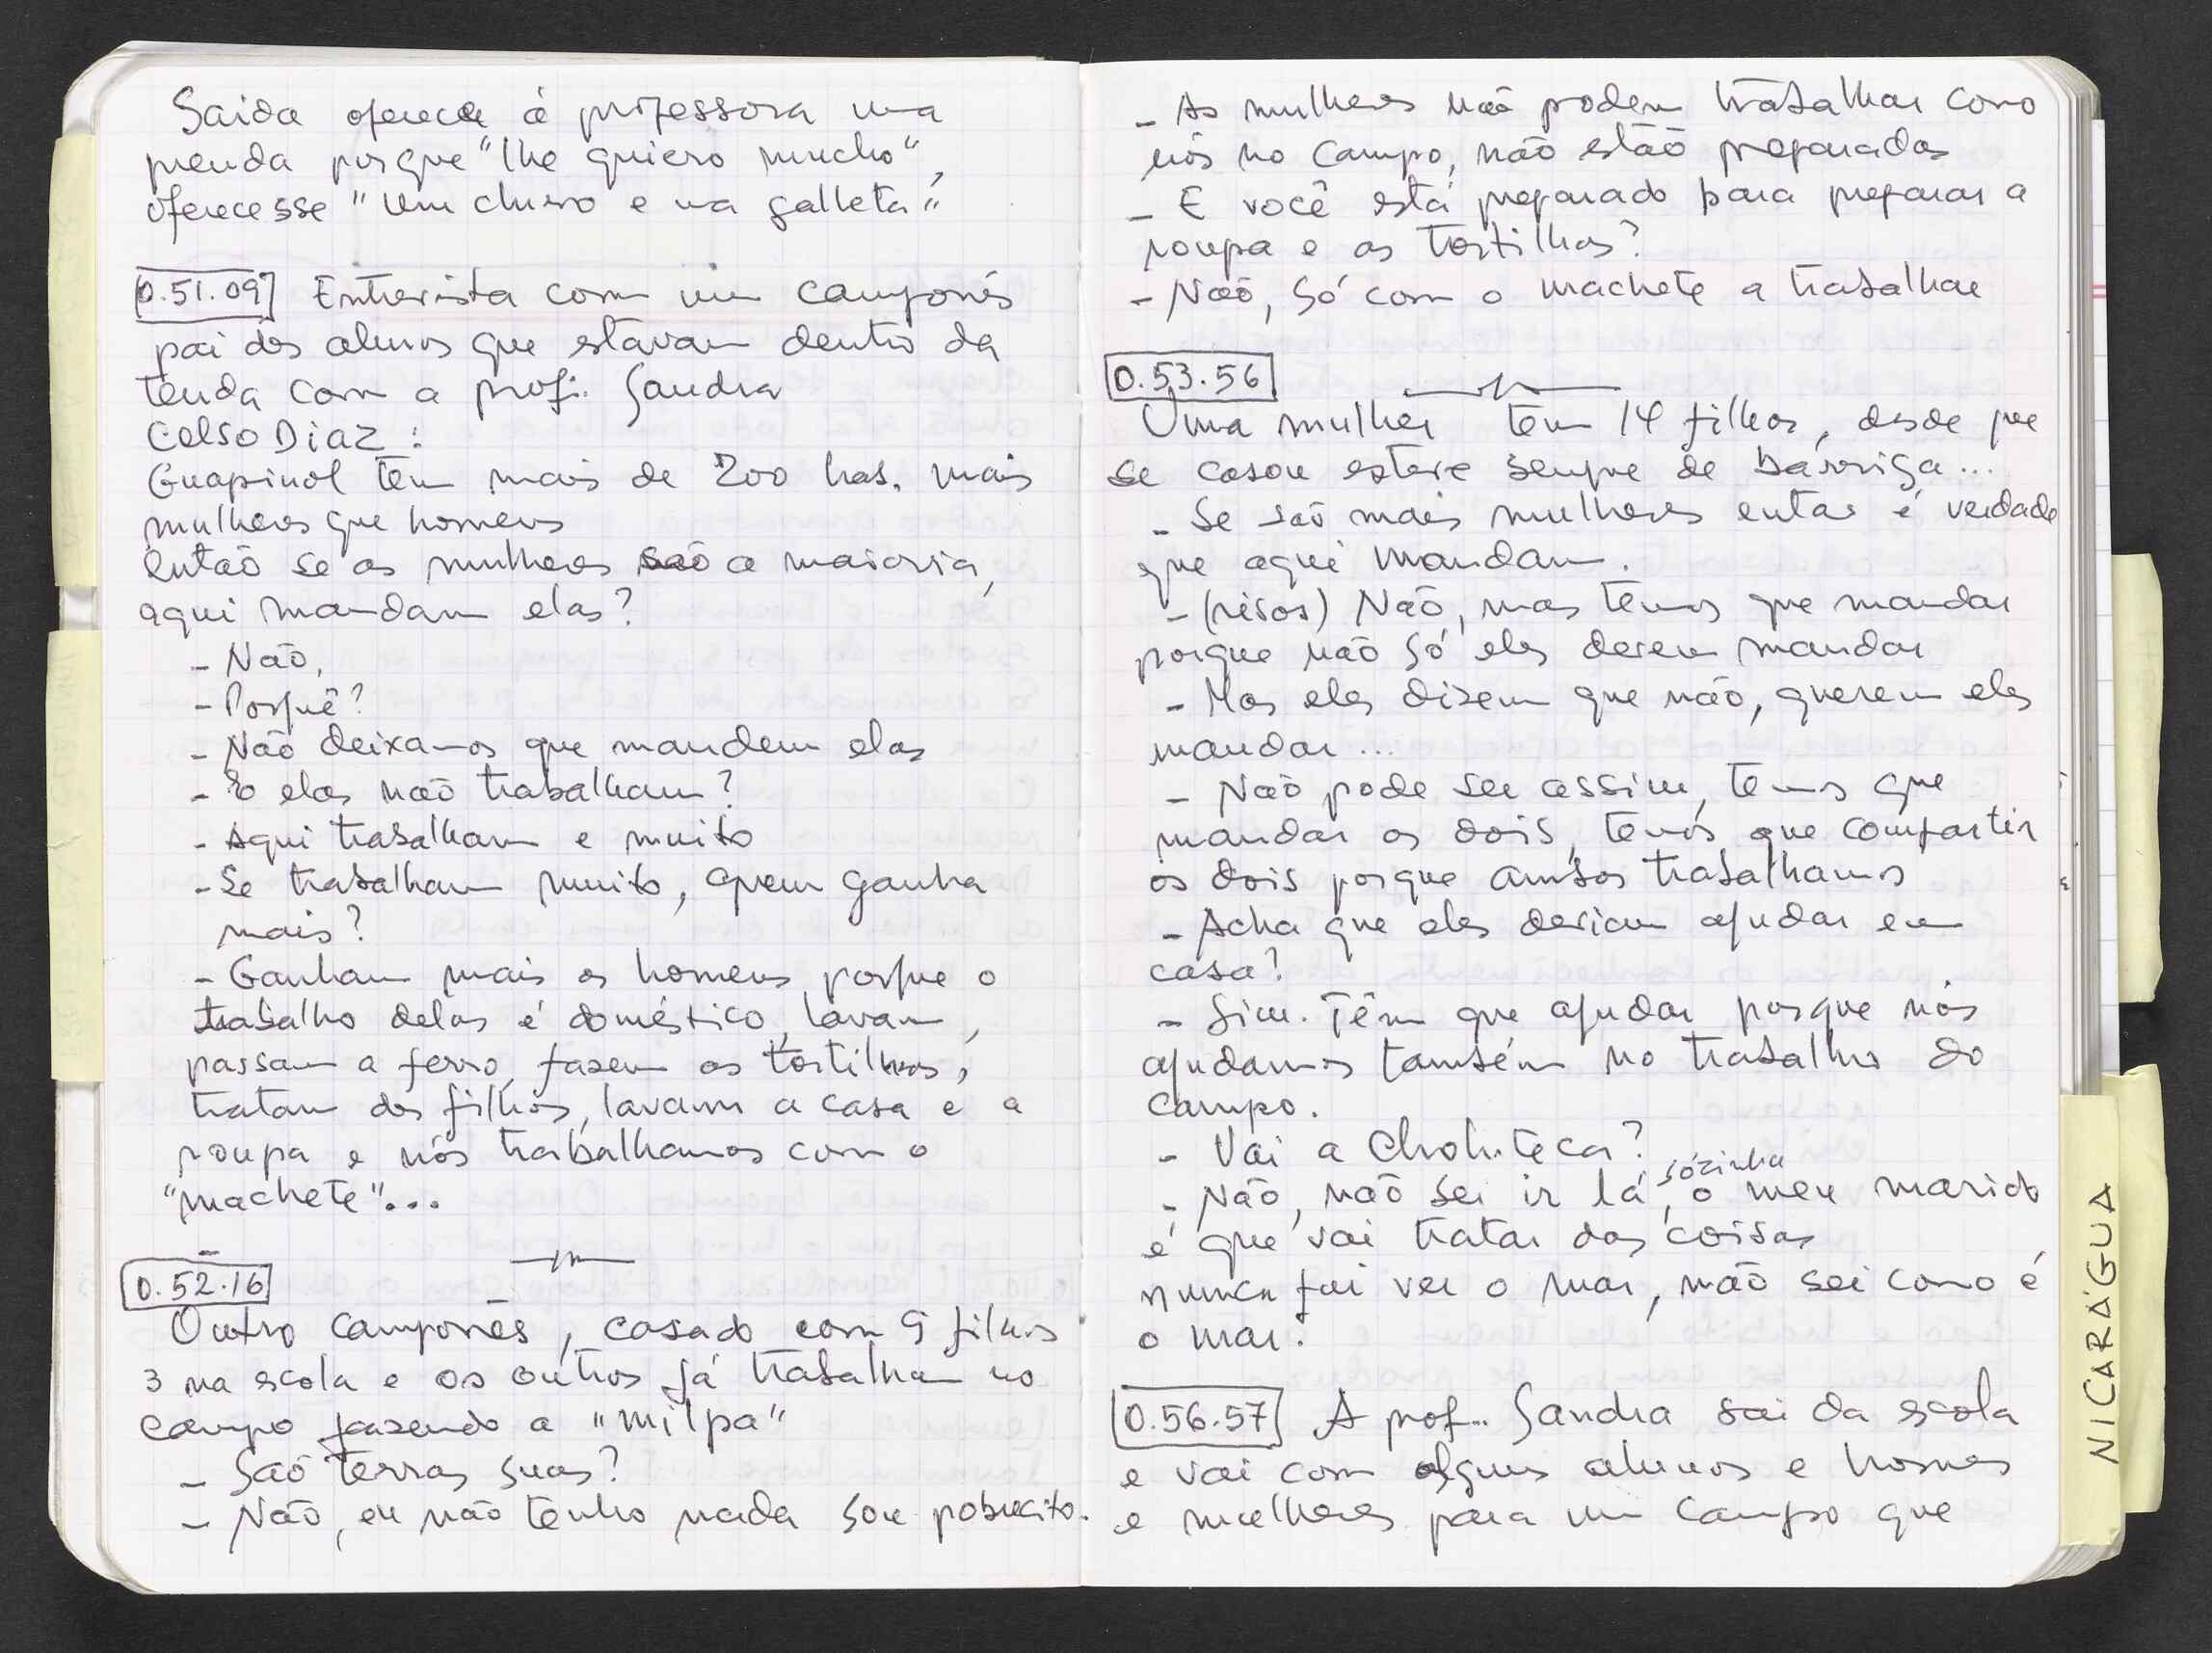 Saida oferece à professora uma
prenda porque "lhe quiero mucho",
oferece sse "um churro e ua galleta"
0.51.09 Entrevista com um camponês
pai dos alunos que estavam dentro da
tenda com a prof. Sandra
Celso Diaz :
Guapinol tem mais de 200 has. mais
mulheres que homens
então se as mulheres são a maioria,
aqui mandam elas?
- Não,
- Porquê?
- Não deixamos que mandem elas
- E elas não trabalham?
- Aqui trabalham e muito
- Se trabalham muito, quem ganha
mais?
- Ganham mais os homens porque o
trabalho delas é doméstico, lavam,
passam a ferro, fazem as tortilhas,
tratam dos filhos, lavam a casa e a
roupa e nós trabalhamos com o
"machete"...
0.52.16
Outro camponês, casado com 9 filhos
3 na escola e os outros já trabalham no
campo fazendo a "milpa"
- São terras suas?
- Não, eu não tenho nada sou pobrecito.
- As mulheres não podem trabalhar como
nós no campo, não estão preparadas
- E você está preparado para preparar a
roupa e as tortilhas?
- Não, só com o machete a trabalhar
0.53.56
Uma mulher tem 14 filhos, desde que
se casou esteve sempre de barriga...
- Se são mais mulheres entao é verdade
que aqui mandam.
- (risos) Não, mas temos que mandar
porque não só eles devem mandar
- Mas eles dizem que não, querem eles
mandar...
- Não pode ser assim, temos que
mandar os dois, temos que compartir
os dois porque ambos trabalhamos
- Acha que eles deviam ajudar em
casa?
- Sim. Têm que ajudar porque nós
ajudamos também no trabalho do
campo.
- Vai a Choluteca?
- Não, não sei ir lá sózinha, o meu marido
é que vai tratar das coisas
nunca fui ver o mar, não sei como é
o mar.
0.56.57 A prof.. Sandra sai da escola
e vai com alguns alunos e homens
e mulheres para um campo que
NICARÁGUA